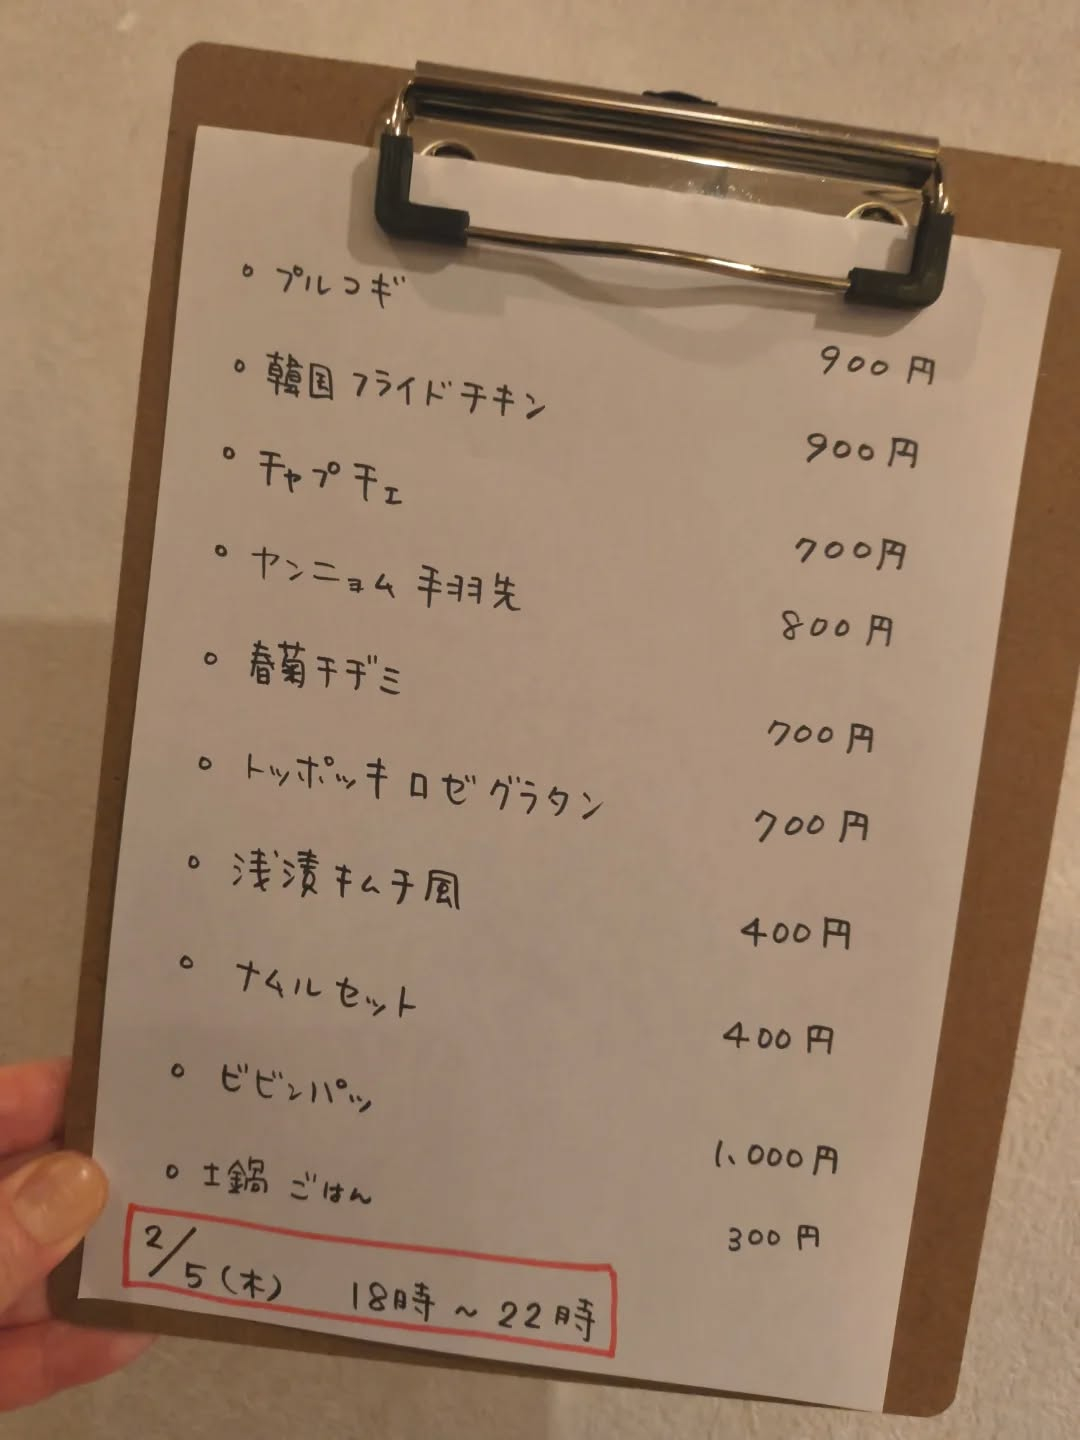 ○ プルコギ 900円
○ 韓国フライドチキン 900円
○ チャプチェ 700円
○ ヤンニョム 手羽先 800円
○ 春菊チヂミ 700円
○ トッポッキ ロゼ グラタン 700円
○ 浅漬キムチ風 400円
○ ナムル セット 400円
○ ビビンパッ 1,000円
○ 土鍋 ごはん 300円
2/5(木) 18時~22時